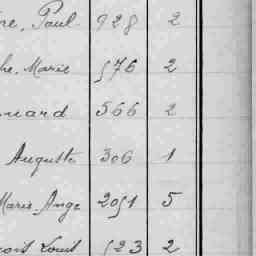 Paul 928 2
Marie 576 2
uard 566 2
Auguste 306 1
Marie-Ange 2051 5
Louis 523 2